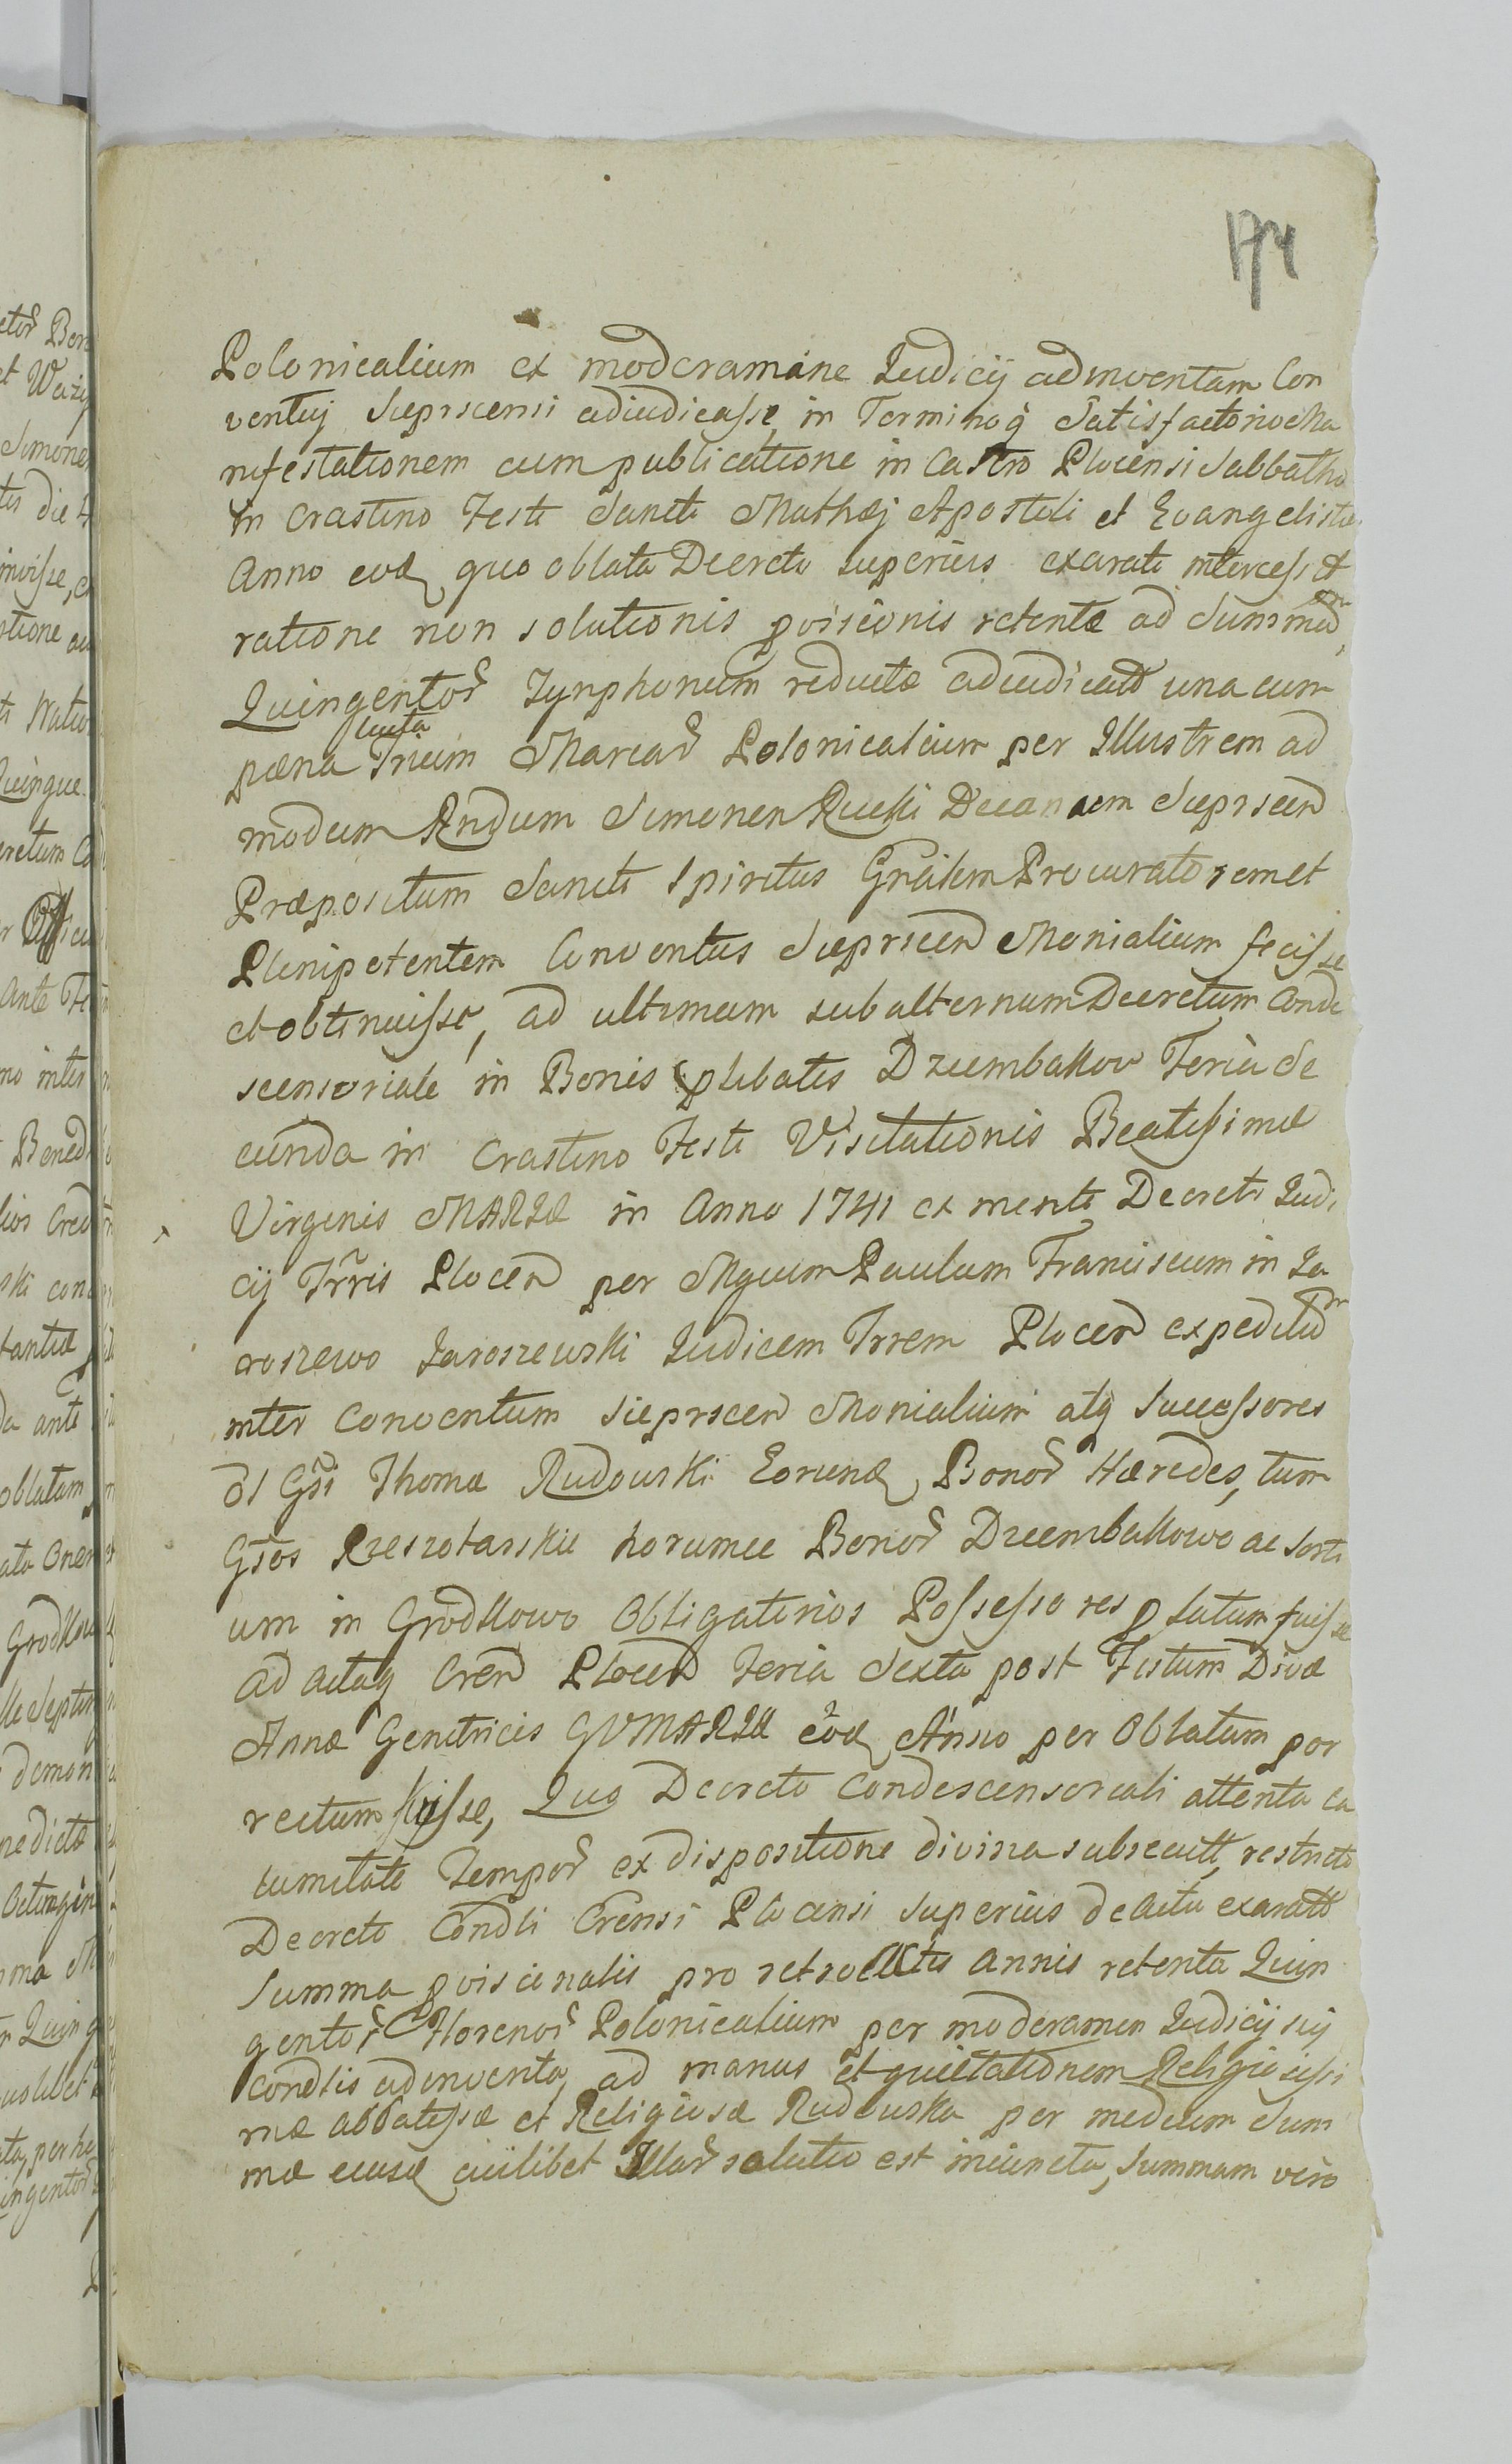 174
Polonicalium ex moderamine Iudicij adinventam Con
ventuj Sieprscensi adiudicasse, in Termino q̃ Satisfactorio Ma
nifestationem cum publicatione in Castro Plocensi Sabbatho
in Crastino Festi Sancti Mathæj Apostoli et Evangelistæ
Anno eod quo oblata Decreti superius exarati intercessit
ratione non solutionis pvisionis retentæ ad Summam
Quingentor Tynphonum reductæ adiudicatæ una cum
pæna lucta Trium Marcar Polonicalium per Illustrem ad
modum Rndum Simonem Rucki Decanum Sieprscen
Præpositum Sancti Spiritus Gñalem Procuratorem et
Plenipotentem Conventus Sieprscen Monialium fecisse
et obtinuisse, ad ultimum subalternum Decretum Conde
scensoriale in Bonis plibatis Dziembakow Feria Se
cunda in Crastino Festi Visitationis Beatissimæ
Virginis MARIÆ in Anno 1741 ex mente Decreti Iudi
cij Trris Plocen per Mgcum Paulum Franciscum in Ja
roszewo Jaroszewski Iudicem Trrem Plocen expeditum
inter Conventum Sieprscen Monialium atq Successores
ol Gsi Thomæ Rudowski Eorund Bonor Hæredes, tum
Gsos Rzeszotarskie horumce Bonor Dziembakowo ac Sorti
um in Grodkowo Obligatorios Possessores p latum fuisse
ad actaq Cren Plocen Feria Sexta post Festum Divæ
Annæ Genitricis GVMARIÆ eod Anno per Oblatam por
rectum fuisse, Quo Decreto Condescensoriali attenta ca
lamitate Tempor ex dispositione divina subsecutt, restricto
Decreto Condli Crensi Plocensi superius de actu exaratt
Summa pvisionalis pro retroactis annis retenta Quin
gentor Florenor Polonicalium per moderamen Iudicij sui
Condlis adinventa, ad manus et quietationem Religiosissi
mæ abbatissæ et Religiosæ Rudowska per medium Sum
mæ eiusd cuilibet Illar solutio est iniuncta, Summam vero